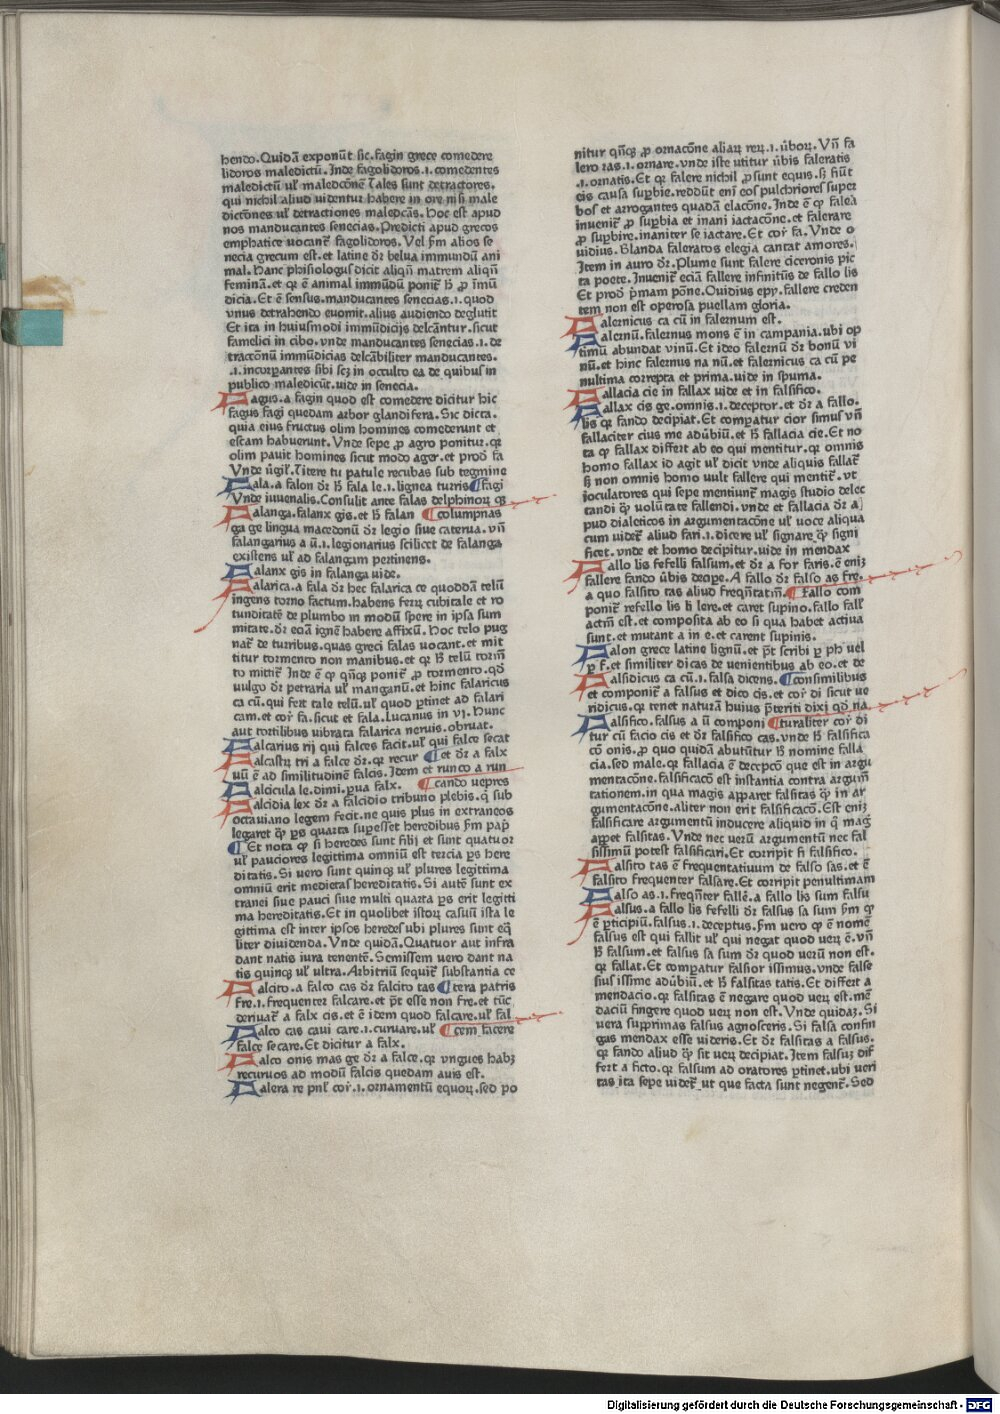 hendo. Quidā exponūt sic. fagin grece comedere
lidoros maledictū. Inde fagolidoros .i. comedentes
maledictū ul' maledcōnē Tales sunt detractores.
qui nichil aliud uidentur habere in ore nisi male
dictōnes ul' detractiones maledcās. Hoc est apud
nos manducantes senecias. Predicti apud grecos
emphatice uocant᷑ fagolidoros. Vel ẜm alios se
necia grecum est. et latine dr̄ belua immundū ani
mal. Hanc phisiologus dicit aliqn̄ matrem aliqn̄
feminā. et qꝛ ē animal immūdū ponit᷑ ħ ꝓ īmū
dicia. Et ē sensus. manducantes senecias .i. quod
vnus detrahendo euomit. alius audiendo deglutit
Et ita in huiusmodi immūdicijs delcāntur. sicut
famelici in cibo. vnde manducantes senecias .i. de
tractōnū immūdicias delcābiliter manducantes.
.i. incorpantes sibi scꝫ in occulto ea de quibus in
publico maledicūt. uide in senecia.
Fagus. a fagin quod est comedere dicitur hic
fagus fagi quedam arbor glandifera. Sic dicta.
quia eius fructus olim homines comederunt et
escam habuerunt. Vnde sepe ꝓ agro ponitur. qꝛ
olim pauit homines sicut modo ager. et prod̄ fa
Vnde ūgil᷑. Titere tu patule recubas sub tegmine
Fala. a falon dr̄ ħ fala le .i. lignea turris ¶ fagi
Vnde iuuenalis. Consulit ante falas delphinoꝝ qꝫ
Falanga. falanx gis. et ħ falan ¶ columpnas
ga ge lingua macedonū dr̄ legio siue caterua. vn̄
falangarius a ū .i. legionarius scilicet de falanga
existens ul' ad falangam pertinens.
Falanx gis in falanga uide.
Falarica. a fala dr̄ hec falarica ce quoddā telū
ingens torno factum. habens ferꝝ cubitale et ro
tunditatē de plumbo in modū spere in ipsa sum
mitate. dr̄ eciā ignē habere affixū. Hoc telo pug
nat᷑ de turribus. quas greci falas uocant. et mit
titur tormento non manibus. et qꝛ ħ telū torm̄
to mittit᷑ Inde ē ꝙ qn̄qꝫ ponit᷑ ꝓ tormento. qd̄
uulgo dr̄ petraria ul' manganū. et hinc falaricus
ca cū. qui fert tale telū. ul' quod ꝑtinet ad falari
cam. et cor᷑ fa. sicut et fala. Lucanus in vj. Hunc
aut tortilibus uibrata falarica neruis. obruat.
Falcarius rij qui falces facit. ul' qui falce secat
Falcastꝝ tri a falce dr̄. qꝛ recur ¶ et dr̄ a falx
uū ē ad similitudinē falcis. Idem et runco a run
Falcicula le. dimi. ꝑua falx. ¶ cando uepres
Falcidia lex dr̄ a falcidio tribuno plebis. q̄ sub
octauiano legem fecit. ne quis plus in extraneos
legaret ꝙ̄ ꝑs quarta suꝑesset heredibus ẜm pap̄
¶ Et nota ꝙ si heredes sunt filij et sunt quatuor
ul' pauciores legittima omniū est tercia ꝑs here
ditatis. Si uero sunt quinqꝫ ul' plures legittima
omniū erit medietas hereditatis. Si autē sunt ex
tranei siue pauci siue multi quarta ꝑs erit legitti
ma hereditatis. Et in quolibet istoꝝ casuū ista le
gittima est inter ipsos heredes ubi plures sunt eq̄
liter diuidenda. Vnde quidā. Quatuor aut infra
dant natis iura tenentē. Semissem uero dant na
tis quinqꝫ ul' ultra. Arbitriū sequit᷑ substantia ce
Falcito. a falco cas dr̄ falcito tas ¶ tera patris
fre .i. frequenter falcare. et pt̄ esse non fre. et tūc
deriuat᷑ a falx cis. et ē idem quod falcare. ul' fal
Falco cas caui care .i. curuare. ul' ¶ cem facere
falce secare. Et dicitur a falx.
Falco onis mas ge dr̄ a falce. qꝛ vngues habꝫ
recuruos ad modū falcis quedam auis est.
Falera re pnl' cor᷑ .i. ornamentū equoꝝ. sed po
nitur qn̄qꝫ ꝓ ornacōne aliaꝝ reꝝ .i. ūboꝝ. Vn̄ fa
lero ras .i. ornare. vnde iste utitur ūbis faleratis
.i. ornatis. Et qꝛ falere nichil ꝓsunt equis. sꝫ fiūt
eis causa suꝑbie. reddūt enī eos pulchriores super
bos et arrogantes quadā elacōne. Inde ē ꝙ falea
inuenit᷑ ꝓ suꝑbia et inani iactacōne. et falerare
ꝓ suꝑbire. inaniter se iactare. Et cor᷑ fa. Vnde o
uidius. Blanda faleratos elegia cantat amores.
Item in auro dr̄. Plume sunt falere ciceronis pic
ta poete. Inuenit᷑ eciā fallere infinitūs de fallo lis
Et prod̄ p̄mam pōne. Ouidius epy. fallere creden
tem non est operosa puellam gloria.
Falernicus ca cū in falernum est.
Falernū. falernus mons ē in campania. ubi op
timū abundat vinū. Et ideo falernū dr̄ bonū vi
nū. et hinc falernus na nū. et falernicus ca cū pe
nultima correpta et prima. uide in spuma.
Fallacia cie in fallax uide et in falsifico.
Fallax cis ge. omnis .i. deceptor. et dr̄ a fallo.
lis qꝛ fando decipiat. Et comꝑatur cior simus vn̄
fallaciter cius me adūbiū. et ħ fallacia cie. Et no
ta ꝙ fallax differt ab eo qui mentitur. qꝛ omnis
homo fallax id agit ul' dicit vnde aliquis fallat᷑
sꝫ non omnis homo uult fallere qui mentit᷑. vt
ioculatores qui sepe mentiunt᷑ magis studio delec
tandi ꝙ̄ volūtate fallendi. vnde et fallacia dr̄ a
pud dialeticos in argumentacōne ul' uoce aliqua
cum uidet᷑ aliud fari .i. dicere ul' signare ꝙ̄ signi
ficet. vnde et homo decipitur. uide in mendax
Fallo lis fefelli falsum. et dr̄ a for faris. ē enī
fallere fando ūbis decipe. A fallo dr̄ falso as fre.
a quo falsito tas aliud freqn̄tatiū. ¶ Fallo com
ponit᷑ refello lis li lere. et caret supino. fallo fall'
actiū est. et composita ab eo si qua habet actiua
sunt. et mutant a in e. et carent supinis.
Falon grece latine lignū. et pt̄ scribi ꝑ ph vel
ꝑ f. et similiter dicas de uenientibus ab eo. et de
Falsidicus ca cū .i. falsa dicens. ¶ consimilibus
et componit᷑ a falsus et dico cis. et cor᷑ di sicut ue
ridicus. qꝛ tenet naturā huius p̄teriti dixi qd̄ na
Falsifico. falsus a ū componi ¶ turaliter cor᷑ di
tur cū facio cis et dr̄ falsifico cas. vnde ħ falsifica
cō onis. ꝓ quo quidā abutūtur ħ nomine falla
cia. sed male. qꝛ fallacia ē decepcō que est in argu
mentacōne. falsificacō est instantia contra argum̄
tationem. in qua magis apparet falsitas ꝙ̄ in ar
gumentacōne. aliter non erit falsificacō. Est enī
falsificare argumentū inducere aliquid in q̄ mag᷑
appet falsitas. Vnde nec uerū argumentū nec fal
sissimū potest falsificari. Et corripit fi falsifico.
Falsito tas ē frequentatiuum de falso sas. et ē
falsito frequenter falsare. Et corripit penultimam
Falso as .i. freqn̄ter fallē. a fallo lis sum falsu
Falsus. a fallo lis fefelli dr̄ falsus sa sum ẜm ꝙ
ē ꝑticipiū. falsus .i. deceptus. ẜm uero ꝙ ē nomē
falsus est qui fallit ul' qui negat quod ueꝝ ē. vn̄
ħ falsum. et falsus sa sum dr̄ quod uerū non est.
qꝛ fallat. Et comꝑatur falsior issimus. vnde false
sius issime adūbiū. et ħ falsitas tatis. Et differt a
mendacio. qꝛ falsitas ē negare quod ueꝝ est. mē
daciū fingere quod ueꝝ non est. Vnde quidaꝫ. Si
uera supprimas falsus agnosceris. Si falsa confin
gas mendax esse uideris. Et dr̄ falsitas a falsus.
qꝛ fando aliud ꝙ̄ sit ueꝝ decipiat. Item falsuꝫ dif
fert a ficto. qꝛ falsum ad oratores ꝑtinet. ubi ueri
tas ita sepe uidet᷑. ut que facta sunt negent᷑. Sed
Digitalisierung gefördert durch die Deutsche Forschungsgemeinschaft - DFG